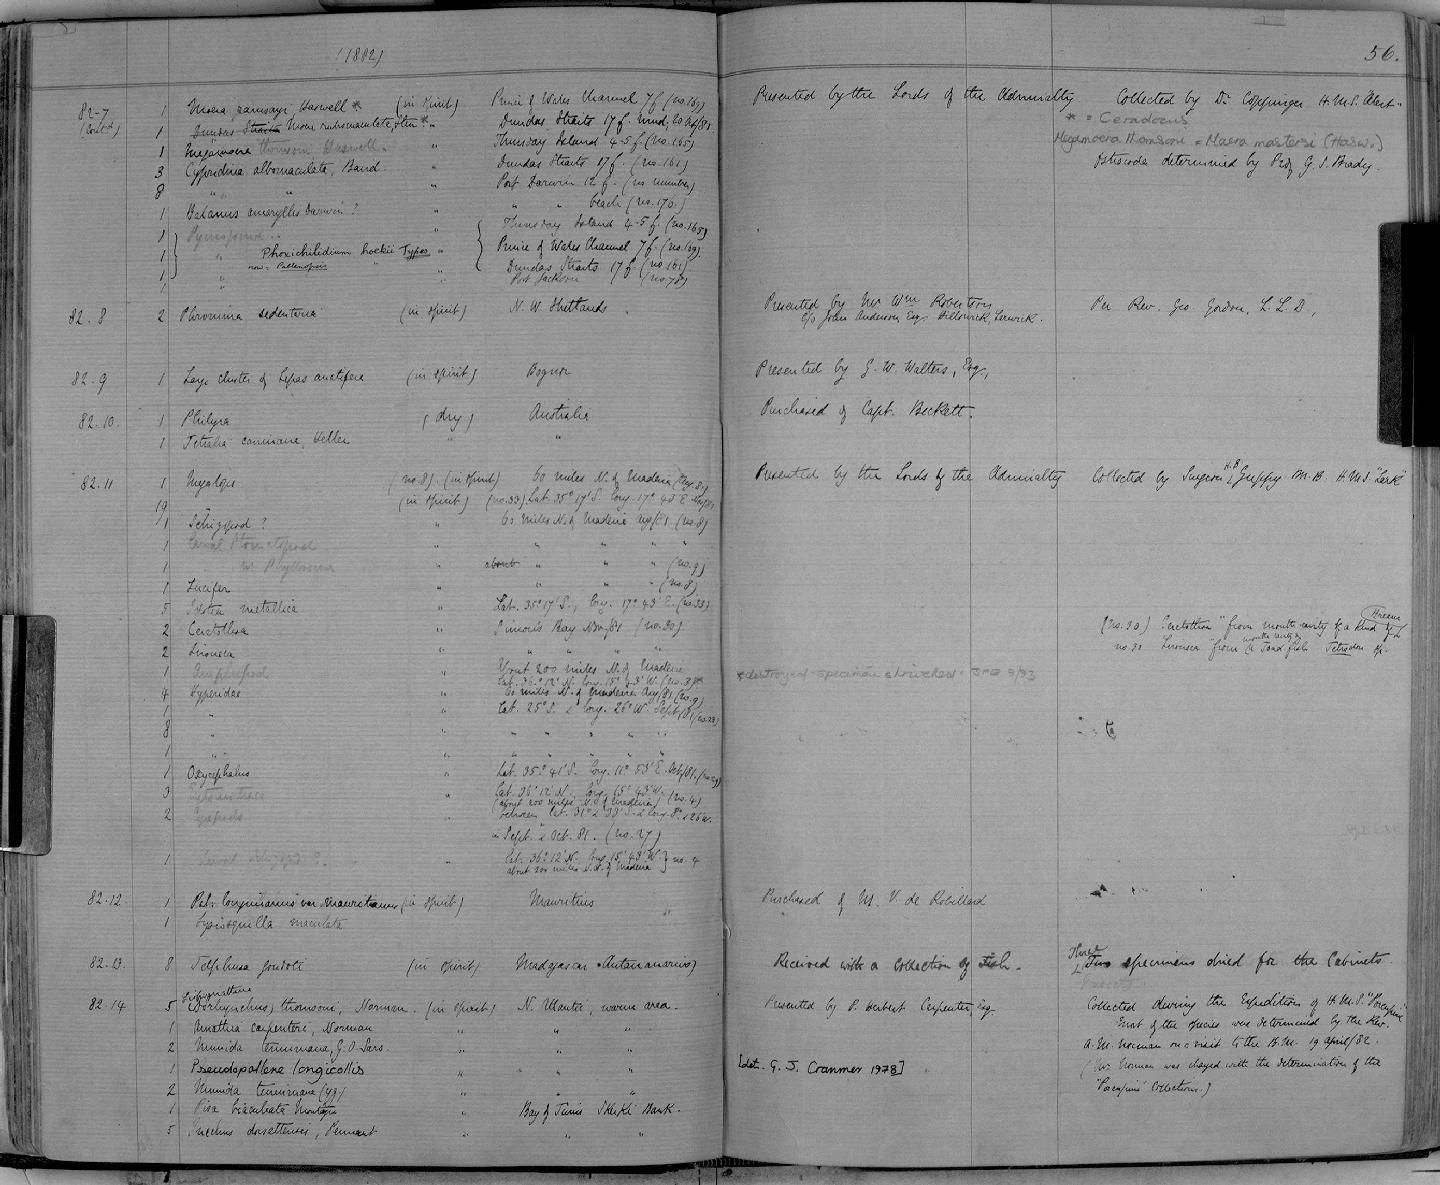 (1882)
56.
82-7 1 Moera ramsayi Haswell * (in spirit) Prince of Wales Channel 7 f. (no. 169) Presented by the Lords of the Admiralty Collected by Dr Coppinger H.M.S. "Alert"
(contd) 1 Dundas Straits Moera rubromaculata, Stm * " Dundas Straits 17 f. mud, 20 Oct/81 * = Ceradocus
1 Megamoera thomsoni Haswell " Thursday Island 4-5 f. (no. 165) Megamoera thomsoni = Maera mastersi (Hasw.)
3 Cypridina albomaculata, Baird " Dundas Straits 17 f. (no. 161) Ostracoda determined by Prof G. S. Brady.
8 " " " Port Darwin 12 f. (no number)
1 Balanus amaryllis Darwin? " " " beach (no. 176.)
1 " Thursday Island 4-5 f. (no. 165)
1 " Phoxichilidium hoekii Types " Prince of Wales Channel 7 f. (no. 169)
now = Pallenopsis "
1 " " Dundas Straits 17 f. (no. 161)
1 " " Port Jackson (no. 78)
82.8 2 Phronima sedentaria (in spirit) N. W. Shetlands Presented by Mr Wm Robertson Per Rev. Geo. Gordon, L.L.D.,
c/o John Anderson Esq. Hillswick, Lerwick.
82.9 1 Large cluster of Lepas anatifera (in spirit) Bognor Presented by G. W. Walters, Esq,
82.10 1 Philyra (dry) Australia Purchased of Capt. Beckett.
1 Tetralia cavimana, Heller " "
82.11 1 Megalops (no. 8) (in spirit) 60 miles N. of Madeira (Aug. 81) Presented by the Lords of the Admiralty Collected by Surgeon H.B. Guppy M.B. H.M.S. "Lark"
19 " (in spirit) (no. 33) Lat. 35° 17' S. Long. 17° 43' E. Nov/81
1 Schizopod? " 60 miles N. of Madeira Aug/81 (no. 8)
1 Larval Stomatopod " " " " "
1 " Phyllosoma " about " " " (no. 9)
1 Lucifer " " " " " (no. 8)
5 Idotea metallica " Lat. 35° 17' S., Long. 17° 43' E. (no. 33)
2 Ceratothoa " Simon's Bay Nov/81 (no. 30) (no. 30) "Ceratothoa" from mouth cavity of a kind of
2 Livoneca " " " " " no. 30 "Livoneca" from mouth cavity of a Toad fish Tetrodon sp.
1 Amphipod " About 200 miles N. of Madeira *destroyed - specimen shrivelled. 9/93
Lat. 36° 12' N. Long. 15° 43' W. (no. 3)*
4 Hyperidae " 60 miles N. of Madeira Aug/81 (no. 9)
1 " " Lat. 25° S. & Long. 26° W. Sept/81 (no. 23)
8 " " " " " " "
1 " " " " " " " "
1 Oxycephalus " Lat. 35° 41' S. Long. 11° 53' E. Oct/81. (no. 29)
3 " Lat. 36° 12' N. Long. 15° 43' W.
(about 200 miles N. of Madeira) (no. 4)
2 " between Lat. 31° & 33° S. & Long. 8° & 26 W.
in Sept. & Oct. 81. (no. 27)
1 Larval ? " Lat. 36° 12' N. Long. 15° 43' W. } no. 4
about 200 miles N. of Madeira
82.12. 1 Palr. longimanus var. mauritianus (in spirit) Mauritius Purchased of M. V. de Robillard
1 Lysiosquilla maculata "
82.13. 8 Telphusa goudoti (in spirit) Madagascar (Antananarivo) Received with a collection of Fish. Three Two specimens dried for the Cabinets.
82.14 5 (Dorhynchus) thomsoni, Norman. (in spirit) N. Atlantic, warm area. Presented by P. Herbert Carpenter, Esq. Collected during the Expedition of H.M.S. "Porcupine"
1 Amathia carpenteri, Norman " " " Most of the species were determined by the Rev.
2 Munida tenuimana, G.O. Sars. " " " A. M. Norman on a visit to the B.M. 19 April/82.
1 Pseudopallene longicollis " " " [det. G. J. Cranmer 1978] (Mr Norman was charged with the determination of the
2 Munida tenuimana (yg.) " " " "Porcupine" Collections.)
1 Pisa biaculeata Montagu " Bay of Tunis Skerki Bank.
5 Inachus dorsettensis, Pennant " " "